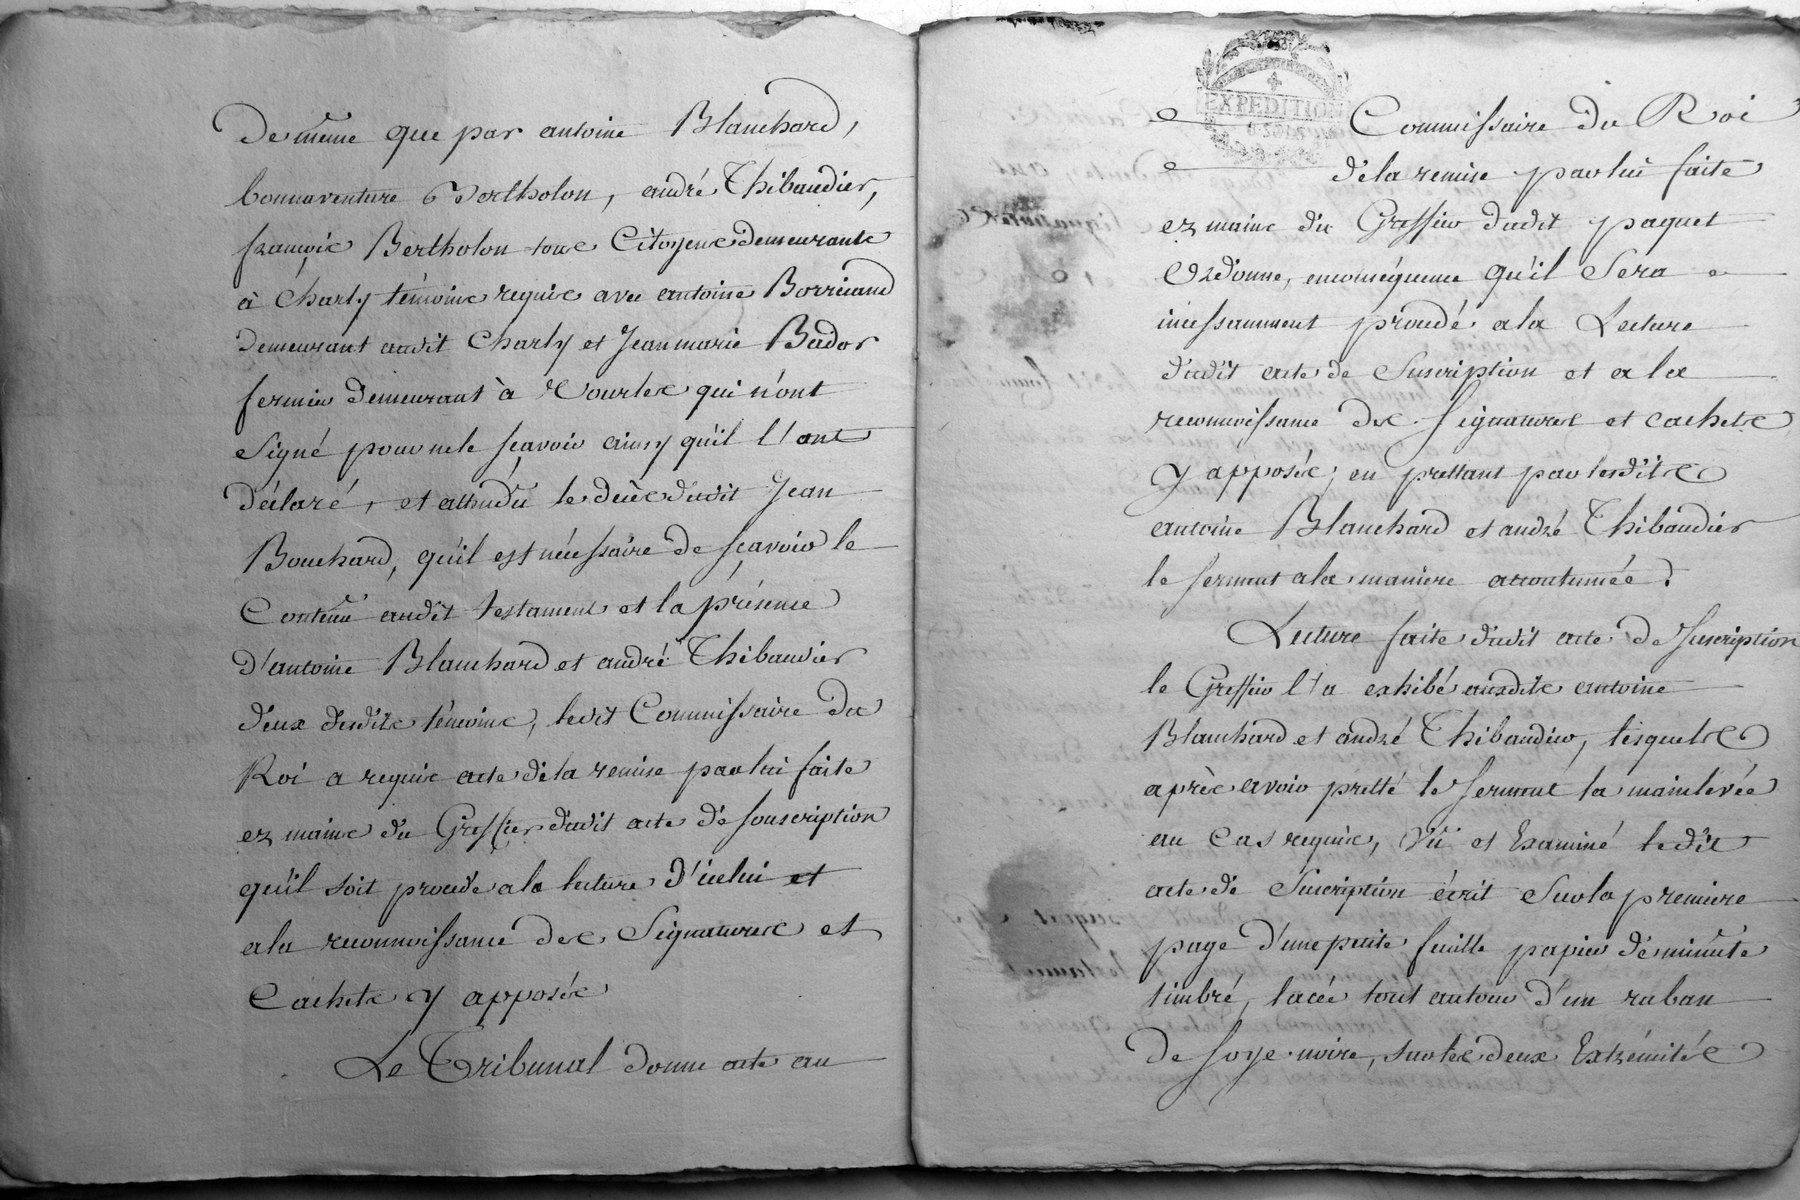 De même que par antoine Blanchard,
bonnaventure Bertholon, andré Thibaudier,
françois Bertholon tous Citoyens demeurants
à Charly témoins requis avec antoine
demeurant audit Charly et Jean marie Bador
fermier demeurant à Vourles qui n'ont
signé pour ne le sçavoir ainsy qu'il l'ont
déclaré, et attendu le decès dudit Jean
Bouchard, qu'il est nécessaire de sçavoir le
Contenu audit testament et la présence
d'antoine Blanchard et andré Thibaudier
deux desdits témoins, ledit Commissaire du
Roi a requis acte de la remise par lui faite
ez mains du Greffier dudit acte de souscription
qu'il soit procédé a la lecture d'icelui et
a la reconnoissance des Signatures et
Cachets y apposés
Le Tribunal donne acte au
EXPEDITION
Commissaire du Roi
de la remise par lui faite
ez mains du Greffier dudit paquet
Ordonne, enconséquence qu'il Sera
incessamment procédé a la Lecture
dudit acte de Suscription et a la
reconnoissance des Signatures et cachets
y apposés, en prettant par lesdits
antoine Blanchard et andré Thibaudier
le serment a la maniere accoutumée.
Lecture faite dudit acte de Suscription
le Greffier l'a exhibé auxdits antoine
Blanchard et andré Thibaudier, lesquels
après avoir pretté le serment la main levée
au Cas requis, Vû et Examiné ledit
acte de Suscription écrit Sur la premiere
page d'une petite feuille papier de minute
timbré, lacée tout autour d'un ruban
de soye noire, sur les deux Extrémités